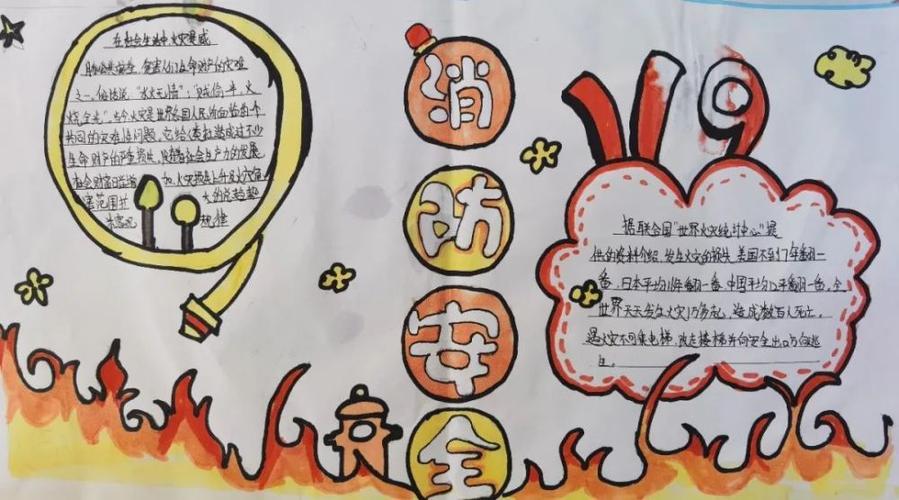 在社会生活中,火灾是威
胁公共安全,危害人们生命财产的灾难
之一。俗话说:"水火无情","贼偷一半,火
烧全光",当今火灾是世界各国人民所面临的一个
共同的灾难性问题。它给人类社会造成过不少
生命、财产的严重损失,随着社会生产力的发展,
社会财富日益增加,火灾损失上升及火灾危
害范围 大的总趋势
客观规律
消
防
安
全
119
据联合国"世界火灾统计中心"提
供的资料介绍,发生火灾的损失,美国不到7年翻一
番,日本平均16年翻一番,中国平均12年翻一番。全
世界天天发生火灾1万多起,造成数百人死亡。
遇火灾不可乘电梯,改走楼梯并向安全出口方向逃
生。